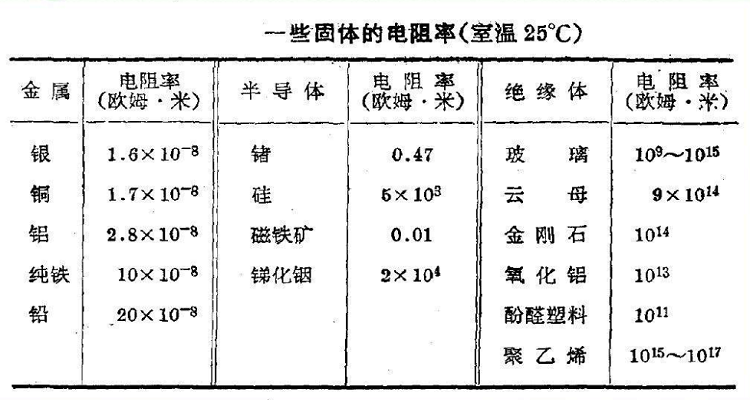 一些固体的电阻率(室温25℃)
金属 电阻率(欧姆·米) 半导体 电阻率(欧姆·米) 绝缘体 电阻率(欧姆·米)
银 1.6×10⁻⁸ 锗 0.47 玻璃 10⁹~10¹⁵
铜 1.7×10⁻⁸ 硅 5×10³ 云母 9×10¹⁴
铝 2.8×10⁻⁸ 磁铁矿 0.01 金刚石 10¹⁴
纯铁 10×10⁻⁸ 锑化铟 2×10⁴ 氧化铝 10¹³
铅 20×10⁻⁸ 酚醛塑料 10¹¹
聚乙烯 10¹⁵~10¹⁷